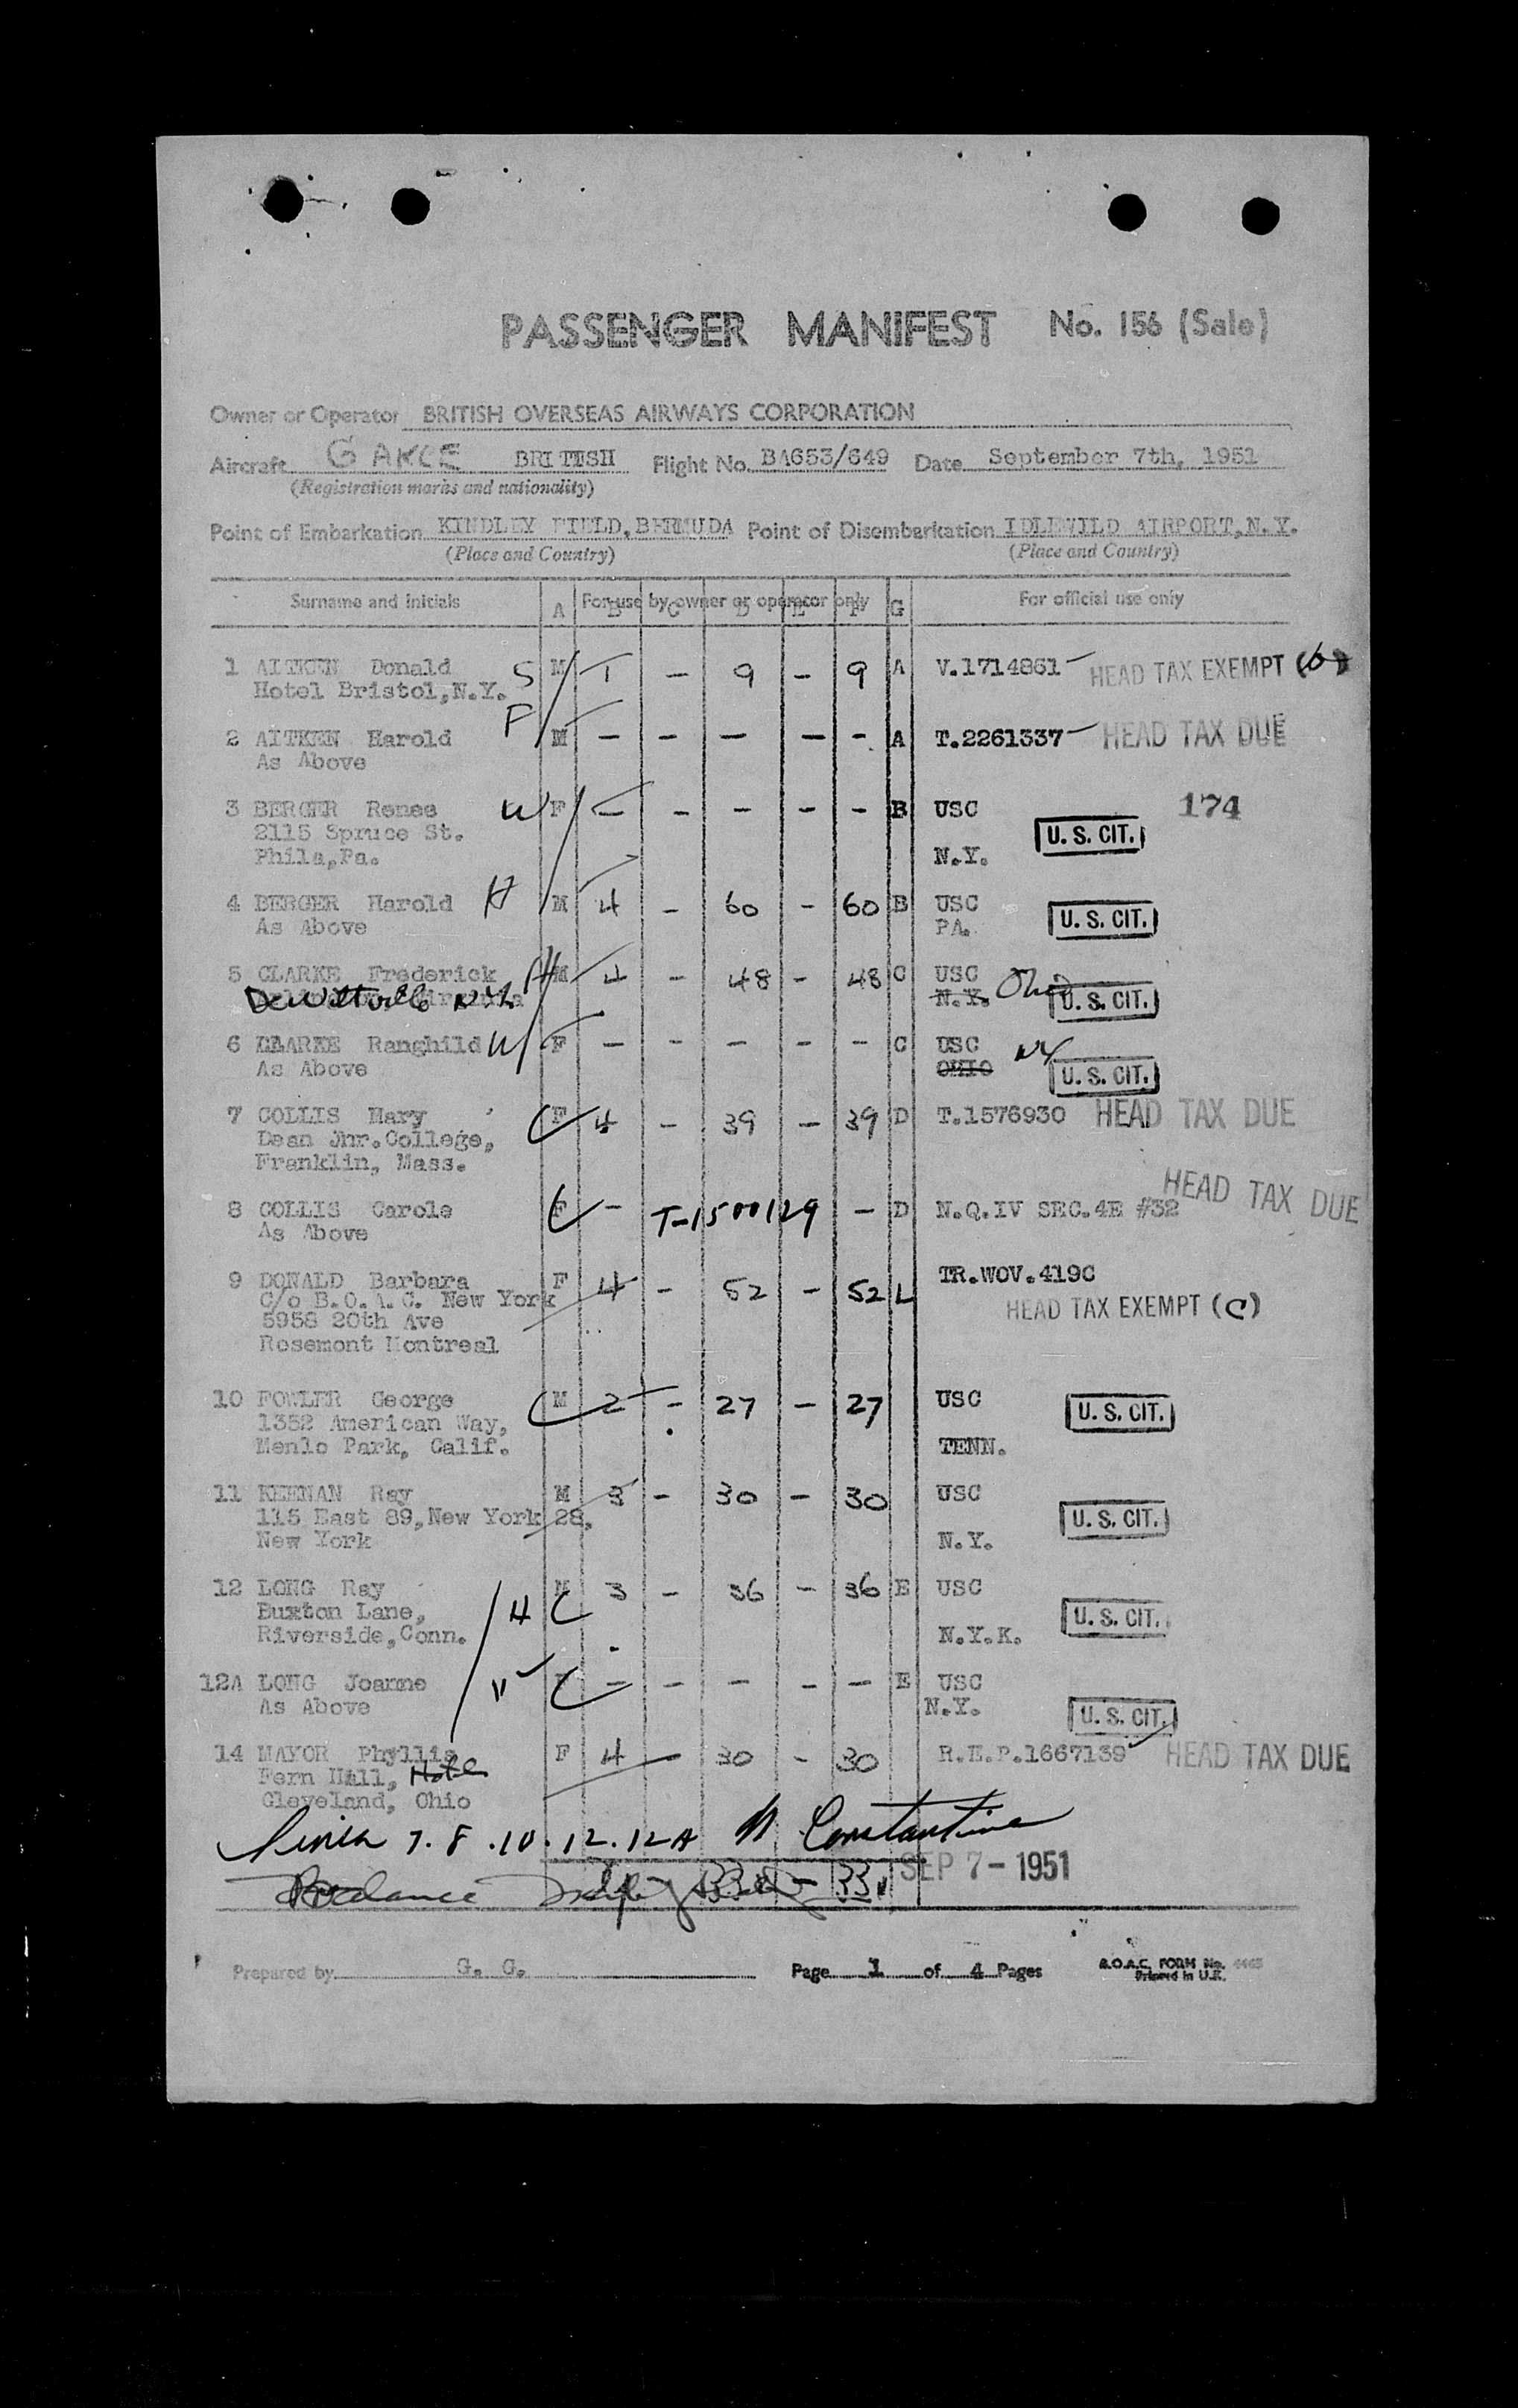 PASSENGER MANIFEST No. 156 (Sale)
Owner or Operator BRITISH OVERSEAS AIRWAYS CORPORATION
Aircraft BRITISH Flight No. BA653/649 Date September 7th, 1951
(Registration marks and nationality)
Point of Embarkation KINDLEY FIELD, BERMUDA Point of Disembarkation IDLEWILD AIRPORT, N.Y.
(Place and Country) (Place and Country)
Surname and initials A For use by owner or operator only G For official use only
1 AITKEN Donald S M 1 - 9 - 9 A V.1714861 HEAD TAX EXEMPT (b)
Hotel Bristol, N.Y.
2 AITKEN Harold F M - - - - - A T.2261337 HEAD TAX DUE
As Above
3 BERGER Renee W F - - - - - B USC 174
2115 Spruce St. U. S. CIT.
Phila, Pa. N.Y.
4 BERGER Harold H M 4 - 60 - 60 B USC
As Above PA. U. S. CIT.
5 CLARKE Frederick H M 4 - 48 - 48 C USC
N.Y. Ohio U. S. CIT.
6 CLARKE Ranghild W F - - - - - C USC NY
As Above OHIO U. S. CIT.
7 COLLIS Mary F 4 - 39 - 39 D T.1576930 HEAD TAX DUE
Dean Jnr. College,
Franklin, Mass.
8 COLLIS Carole F - T-1500129 - D N.Q.IV SEC.4E #32 HEAD TAX DUE
As Above
9 DONALD Barbara F 4 - 52 - 52 L TR.WOV.419C
C/o B.O.A.C. New York HEAD TAX EXEMPT (C)
5958 20th Ave
Rosemont Montreal
10 FOWLER George M 2 - 27 - 27 USC
1352 American Way, U. S. CIT.
Menlo Park, Calif. TENN.
11 KEENAN Ray M 3 - 30 - 30 USC
115 East 89, New York 28, U. S. CIT.
New York N.Y.
12 LONG Ray M 3 - 36 - 36 E USC
Buxton Lane, H U. S. CIT.
Riverside, Conn. N.Y.K.
12A LONG Joanne F - - - - - E USC
As Above N.Y. U. S. CIT.
14 MAYOR Phyllis F 4 - 30 - 30 R.E.P.1667139 HEAD TAX DUE
Fern Hall, Hotel
Cleveland, Ohio
7. 8. 10. 12. 12A Constantine
SEP 7 - 1951
Prepared by G. G. Page 1 of 4 Pages B.O.A.C. FORM No.
Printed in U.K.